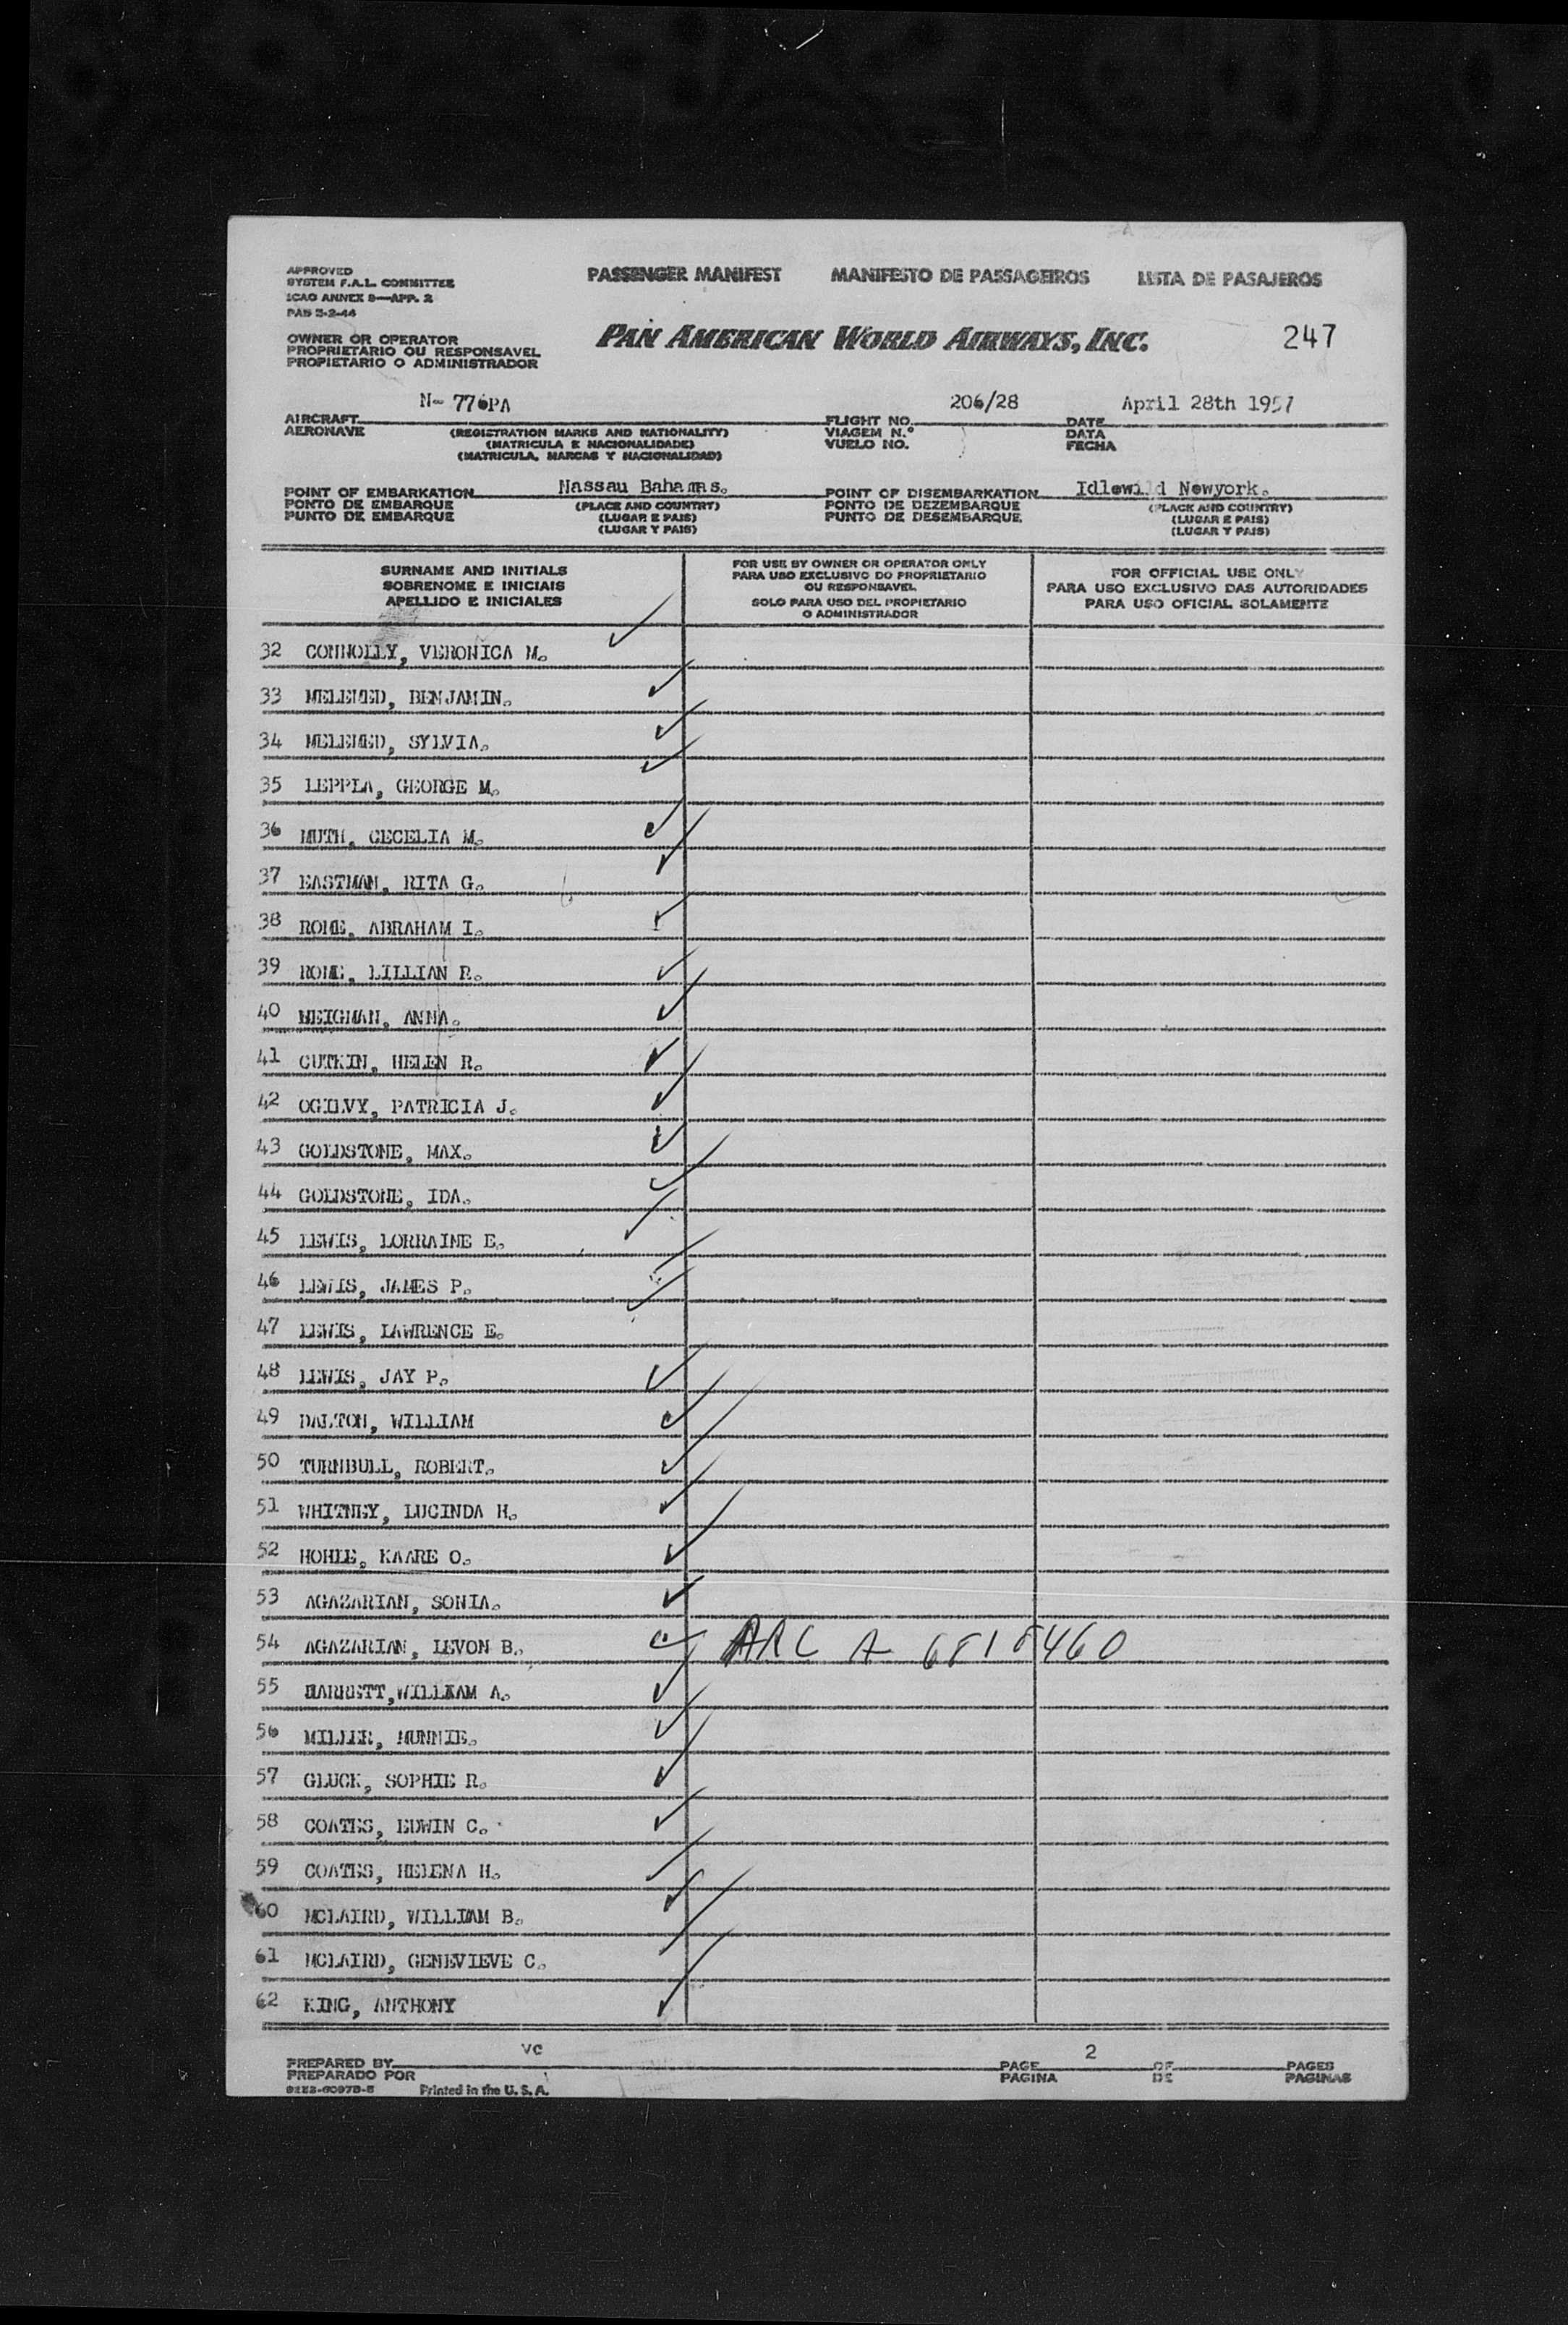 APPROVED
SYSTEM F.A.L. COMMITTEE
ICAO ANNEX 9—APP. 2
PAB 5-2-44
PASSENGER MANIFEST MANIFESTO DE PASSAGEIROS LISTA DE PASAJEROS
OWNER OR OPERATOR
PROPRIETARIO OU RESPONSAVEL
PROPIETARIO O ADMINISTRADOR
PAN AMERICAN WORLD AIRWAYS, INC.
247
AIRCRAFT N- 776PA FLIGHT NO. 206/28 DATE April 28th 1957
AERONAVE (REGISTRATION MARKS AND NATIONALITY) VIAGEM N.º DATA
(MATRICULA E NACIONALIDADE) VUELO NO. FECHA
(MATRICULA, MARCAS Y NACIONALIDAD)
POINT OF EMBARKATION Nassau Bahamas. POINT OF DISEMBARKATION Idlewild Newyork.
PONTO DE EMBARQUE (PLACE AND COUNTRY) PONTO DE DEZEMBARQUE (PLACE AND COUNTRY)
PUNTO DE EMBARQUE (LUGAR E PAIS) PUNTO DE DESEMBARQUE (LUGAR E PAIS)
(LUGAR Y PAIS) (LUGAR Y PAIS)
SURNAME AND INITIALS
SOBRENOME E INICIAIS
APELLIDO E INICIALES
FOR USE BY OWNER OR OPERATOR ONLY
PARA USO EXCLUSIVO DO PROPRIETARIO
OU RESPONSAVEL
SOLO PARA USO DEL PROPIETARIO
O ADMINISTRADOR
FOR OFFICIAL USE ONLY
PARA USO EXCLUSIVO DAS AUTORIDADES
PARA USO OFICIAL SOLAMENTE
32 CONNOLLY, VERONICA M.
33 MELEMED, BENJAMIN.
34 MELEMED, SYLVIA.
35 LEPPLA, GEORGE M.
36 MUTH, CECELIA M.
37 EASTMAN, RITA G.
38 ROME, ABRAHAM I.
39 ROME, LILLIAN R.
40 NEIGMAN, ANNA.
41 GUTKIN, HELEN R.
42 OGILVY, PATRICIA J.
43 GOLDSTONE, MAX.
44 GOLDSTONE, IDA.
45 LEWIS, LORRAINE E.
46 LEWIS, JAMES P.
47 LEWIS, LAWRENCE E.
48 LEWIS, JAY P.
49 DALTON, WILLIAM
50 TURNBULL, ROBERT.
51 WHITNEY, LUCINDA H.
52 HOHLE, KAARE O.
53 AGAZARIAN, SONIA.
54 AGAZARIAN, LEVON B. ARC A
55 BARRETT, WILLIAM A.
56 MILLER, MUNNIE.
57 GLUCK, SOPHIE R.
58 COATES, EDWIN C.
59 COATES, HELENA H.
60 MCLAIRD, WILLIAM B.
61 MCLAIRD, GENEVIEVE C.
62 KING, ANTHONY
PREPARED BY VC PAGE 2 OF PAGES
PREPARADO POR PAGINA DE PAGINAS
Printed in the U. S. A.